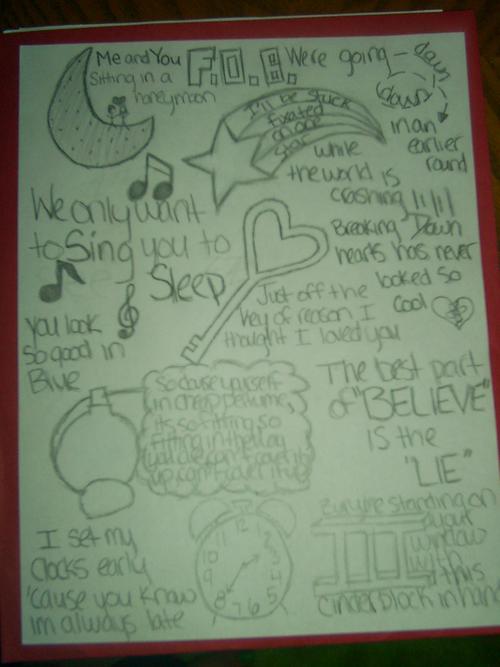 Me and You
Sitting in a
honeymoon
F.O.B.
We're going - down
down
in an
earlier
round
I'll be stuck
fixated
on one
star
while
the world is
crashing
We only want
to Sing you to
Sleep
Breaking Down
hearts has never
looked so
cool
Just off the
key of reason I
thought I loved you
you look
so good in
Blue
So douse yourself
in cheap perfume,
its so fitting so
fitting in the way
you are
cover it
up
cover it up
The best part
of "BELIEVE"
IS the
"LIE"
I set my
Clocks early
'cause you know
im always late
12
standing on
your
window
with
this
cinderblock in hand